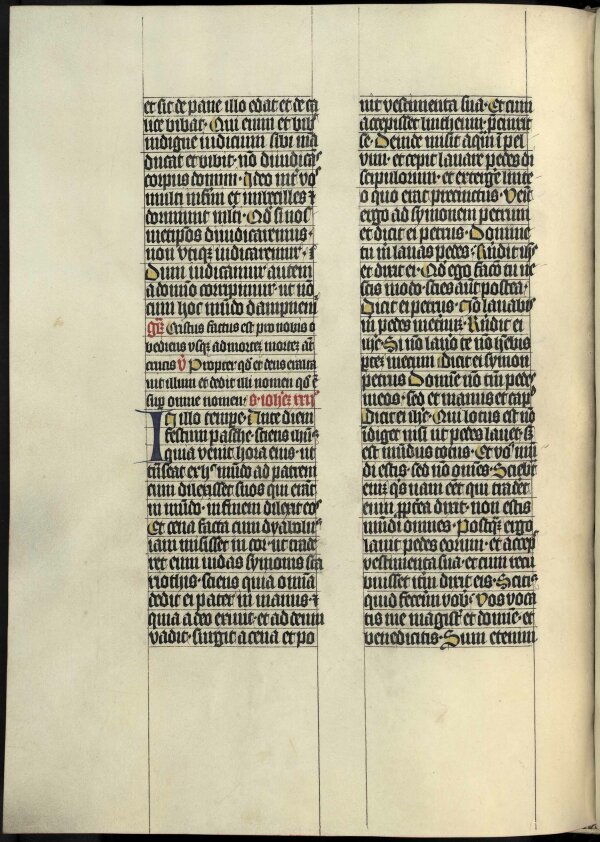 et sic de pane illo edat et de ca
lice bibat· Qui enim et bibit
indigne iudicium sibi man
ducat et bibit· nō diiudicās
corpus domini· Ideo int̄ vos
multi infirmi et imbecilles ⁊
dormiunt mlti· Qd̄ si nos
metipos diiudicaremus·
non vtiq̄ iudicaremur·
Dum iudicamur autem
a domino corripimur· ut nō
cum hoc mūdo dampnem̄
gr̄ Cristus factus est pro nobis o
bediens vsq̄ ad mortē· mortē aūt
crucis v̄ Propter qd̄ et deus exalta
uit illum et dedit illi nomen qd̄ ē
sup omne nomen· s· ioh̄ez xiij
In illo tempe· Ante diem
festum pasche· sciens ihūs
quia venit hora eius· ut
trāseat ex hoc mūdo ad patrem
cum dilexisset suos qui erāt
in mūdo· in finem dilexit eos
Et cena facta cum dyabolus
iam misisset in cor· ut trade
ret eum iudas symonis sca
riothis· sciens quia omīa
dedit ei pater in manus· ⁊
quia a deo exiuit· et ad deum
vadit· surgit a cena et po
nit vestimenta sua· Et cum
accepisset lintheum· p̄cinxit
se· Deinde misit aq̄m ī pel
vim· et cepit lauare pedes di
scipulorum· et extergē linte
o quo erat precinctus· Venit
ergo ad symonem petrum
et dicit ei petrus· Domine
tu m̄ lauas pedes· Rn̄dit ihs̄
et dixit ei· Qd̄ ego facio tu ne
scis modo· scies aūt postea·
Dicit ei petrus· Nō lauabis
m̄ pedes in eternū· Rn̄dit ei
ihc̄· Si nō lauero te nō hēbis
ptē mecum· dicit ei symon
petrus Domine nō tm̄ pedes
meos· sed et manus et cap̄
Dicit ei ihc̄· Qui lotus est nō
īdiget nisi ut pedes lauet· s̄
est mūdus totus· Et vos mū
di estis· sed nō om̄es· Sciebat
enī qs nam eēt qui traderet
eum· ppt̄ea dixit· non estis
mūdi omnes· Postq̄ ergo
lauit pedes eorum· et accepit
vestimenta sua· et cum recu
buisset itm̄ dixit eis· Scitis
quid fecerim vob̄· Vos voca
tis me magist̄ et domine· et
benedicitis· Sum etenim